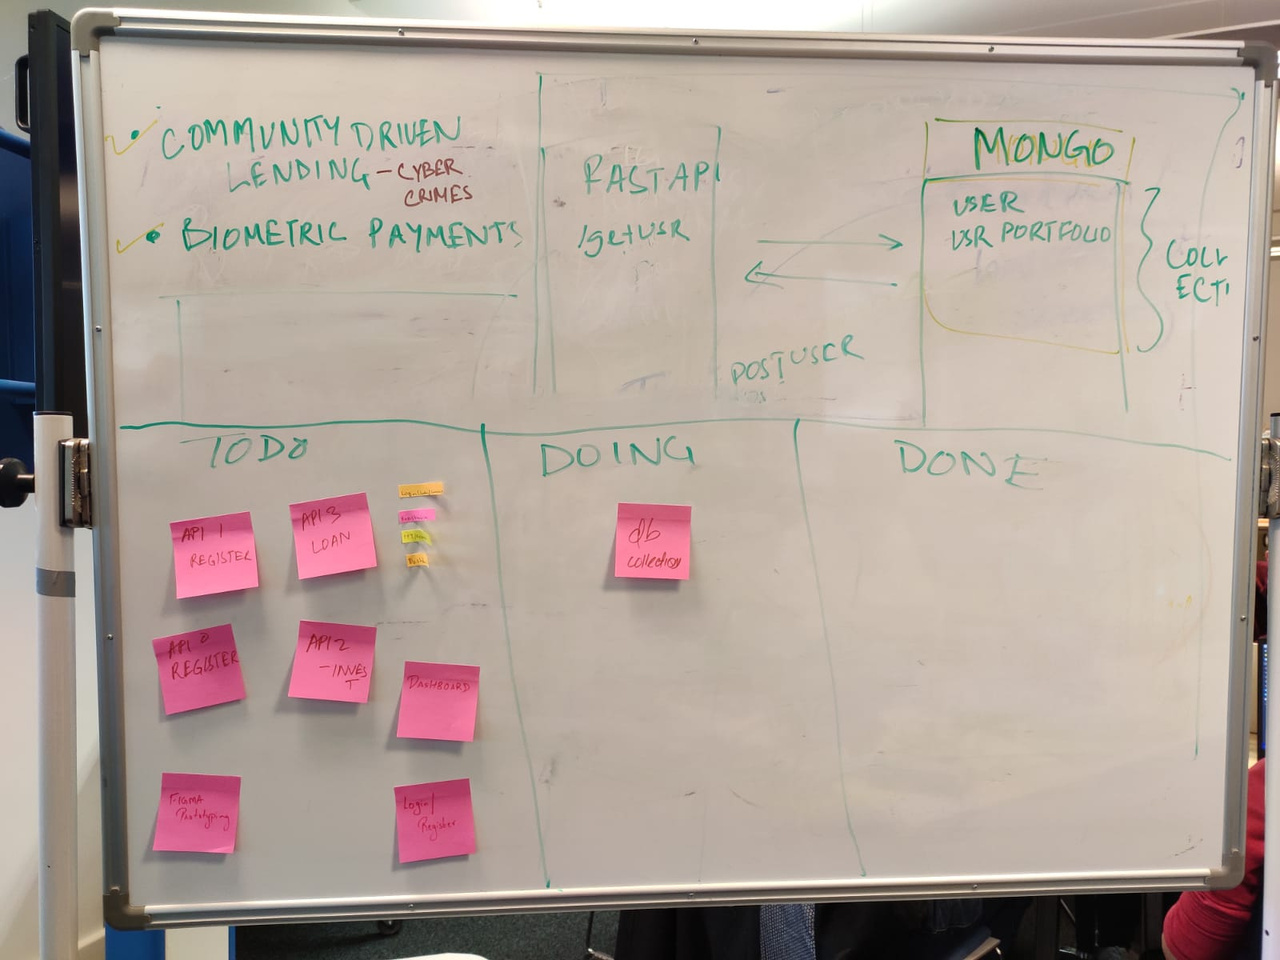 COMMUNITY DRIVEN
LENDING - CYBER
CRIMES
BIOMETRIC PAYMENTS
FASTAPI
/getUSR
POSTUSER
MONGO
USER
USR PORTFOLIO
COLL
ECTI
TODO
DOING
DONE
API 1
REGISTER
API 3
LOAN
API 0
REGISTER
API 2
- INVES
T
DASHBOARD
FIGMA
Prototyping
Login/
Register
db
collection